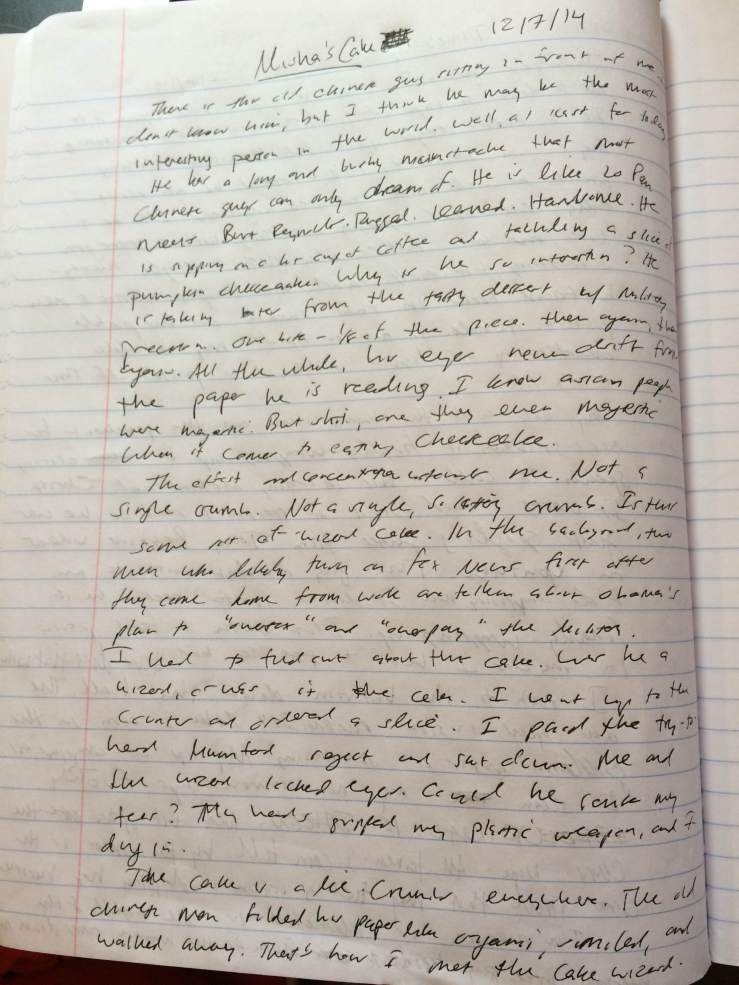 12/7/14
Misha's Cake
There is this old chinese guy sitting in front of me. I
don't know him, but I think he may be the most
interesting person in the world. Well, at least for today
He has a long and bushy moustache that most
Chinese guys can only dream of. He is like Lo Pan
meets Burt Reynolds. Rugged. Learned. Handsome. He
is sipping on a hot cup of coffee and tackling a slice of
pumpkin cheesecake. Why is he so interesting? He
is taking bites from the tasty dessert w/ military
precision. One bite - 1/8 of the piece. then again, then
again. All the while, his eyes never drift from
the paper he is reading. I know asian people
were majestic. But shit, are they even majestic
when it comes to eating cheesecake.
The effort and concentration me. Not a
single crumb. Not a single, crumb. Is this
some sort of wizard cake. In the background, two
men who likely turn on fox News first after
they come home from work are talking about Obama's
plan to "overtax" and "overpay" the military.
I had to find out about this cake. Was he a
wizard, or was it the cake. I went up to the
Counter and ordered a slice. I paid the try-to-
hard Mumford reject and sat down. Me and
the wizard locked eyes. Could he sense my
fear? My hands gripped my plastic weapon, and I
dug in.
The cake is a lie. Crumbs everywhere. The old
chinese man folded his paper like orgami, smiled, and
walked away. That's how I met the Cake wizard.